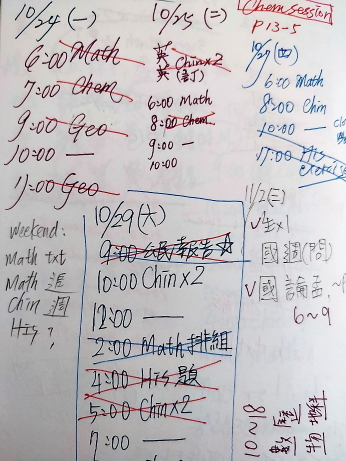 10/24 (一)
6:00 Math
7:00 Chem
9:00 Geo
10:00 —
11:00 Geo
10/25 (二)
英 Chin x2
英 (訂)
6:00 Math
8:00 Chem
9:00 —
10:00
Chem session
P13-5
10/27 (四)
6:00 Math
8:00 Chin
10:00 —
17:00 His
weekend:
Math txt
Math
Chin 週
His?
10/29 (六)
9:00 公民報告☆
10:00 Chin x2
12:00 —
2:00 Math 排組
4:00 His 題
5:00 Chin x2
7:00 —
11/2 (三)
√生x1
國週(問)
√國
6~9
10~18
數
物